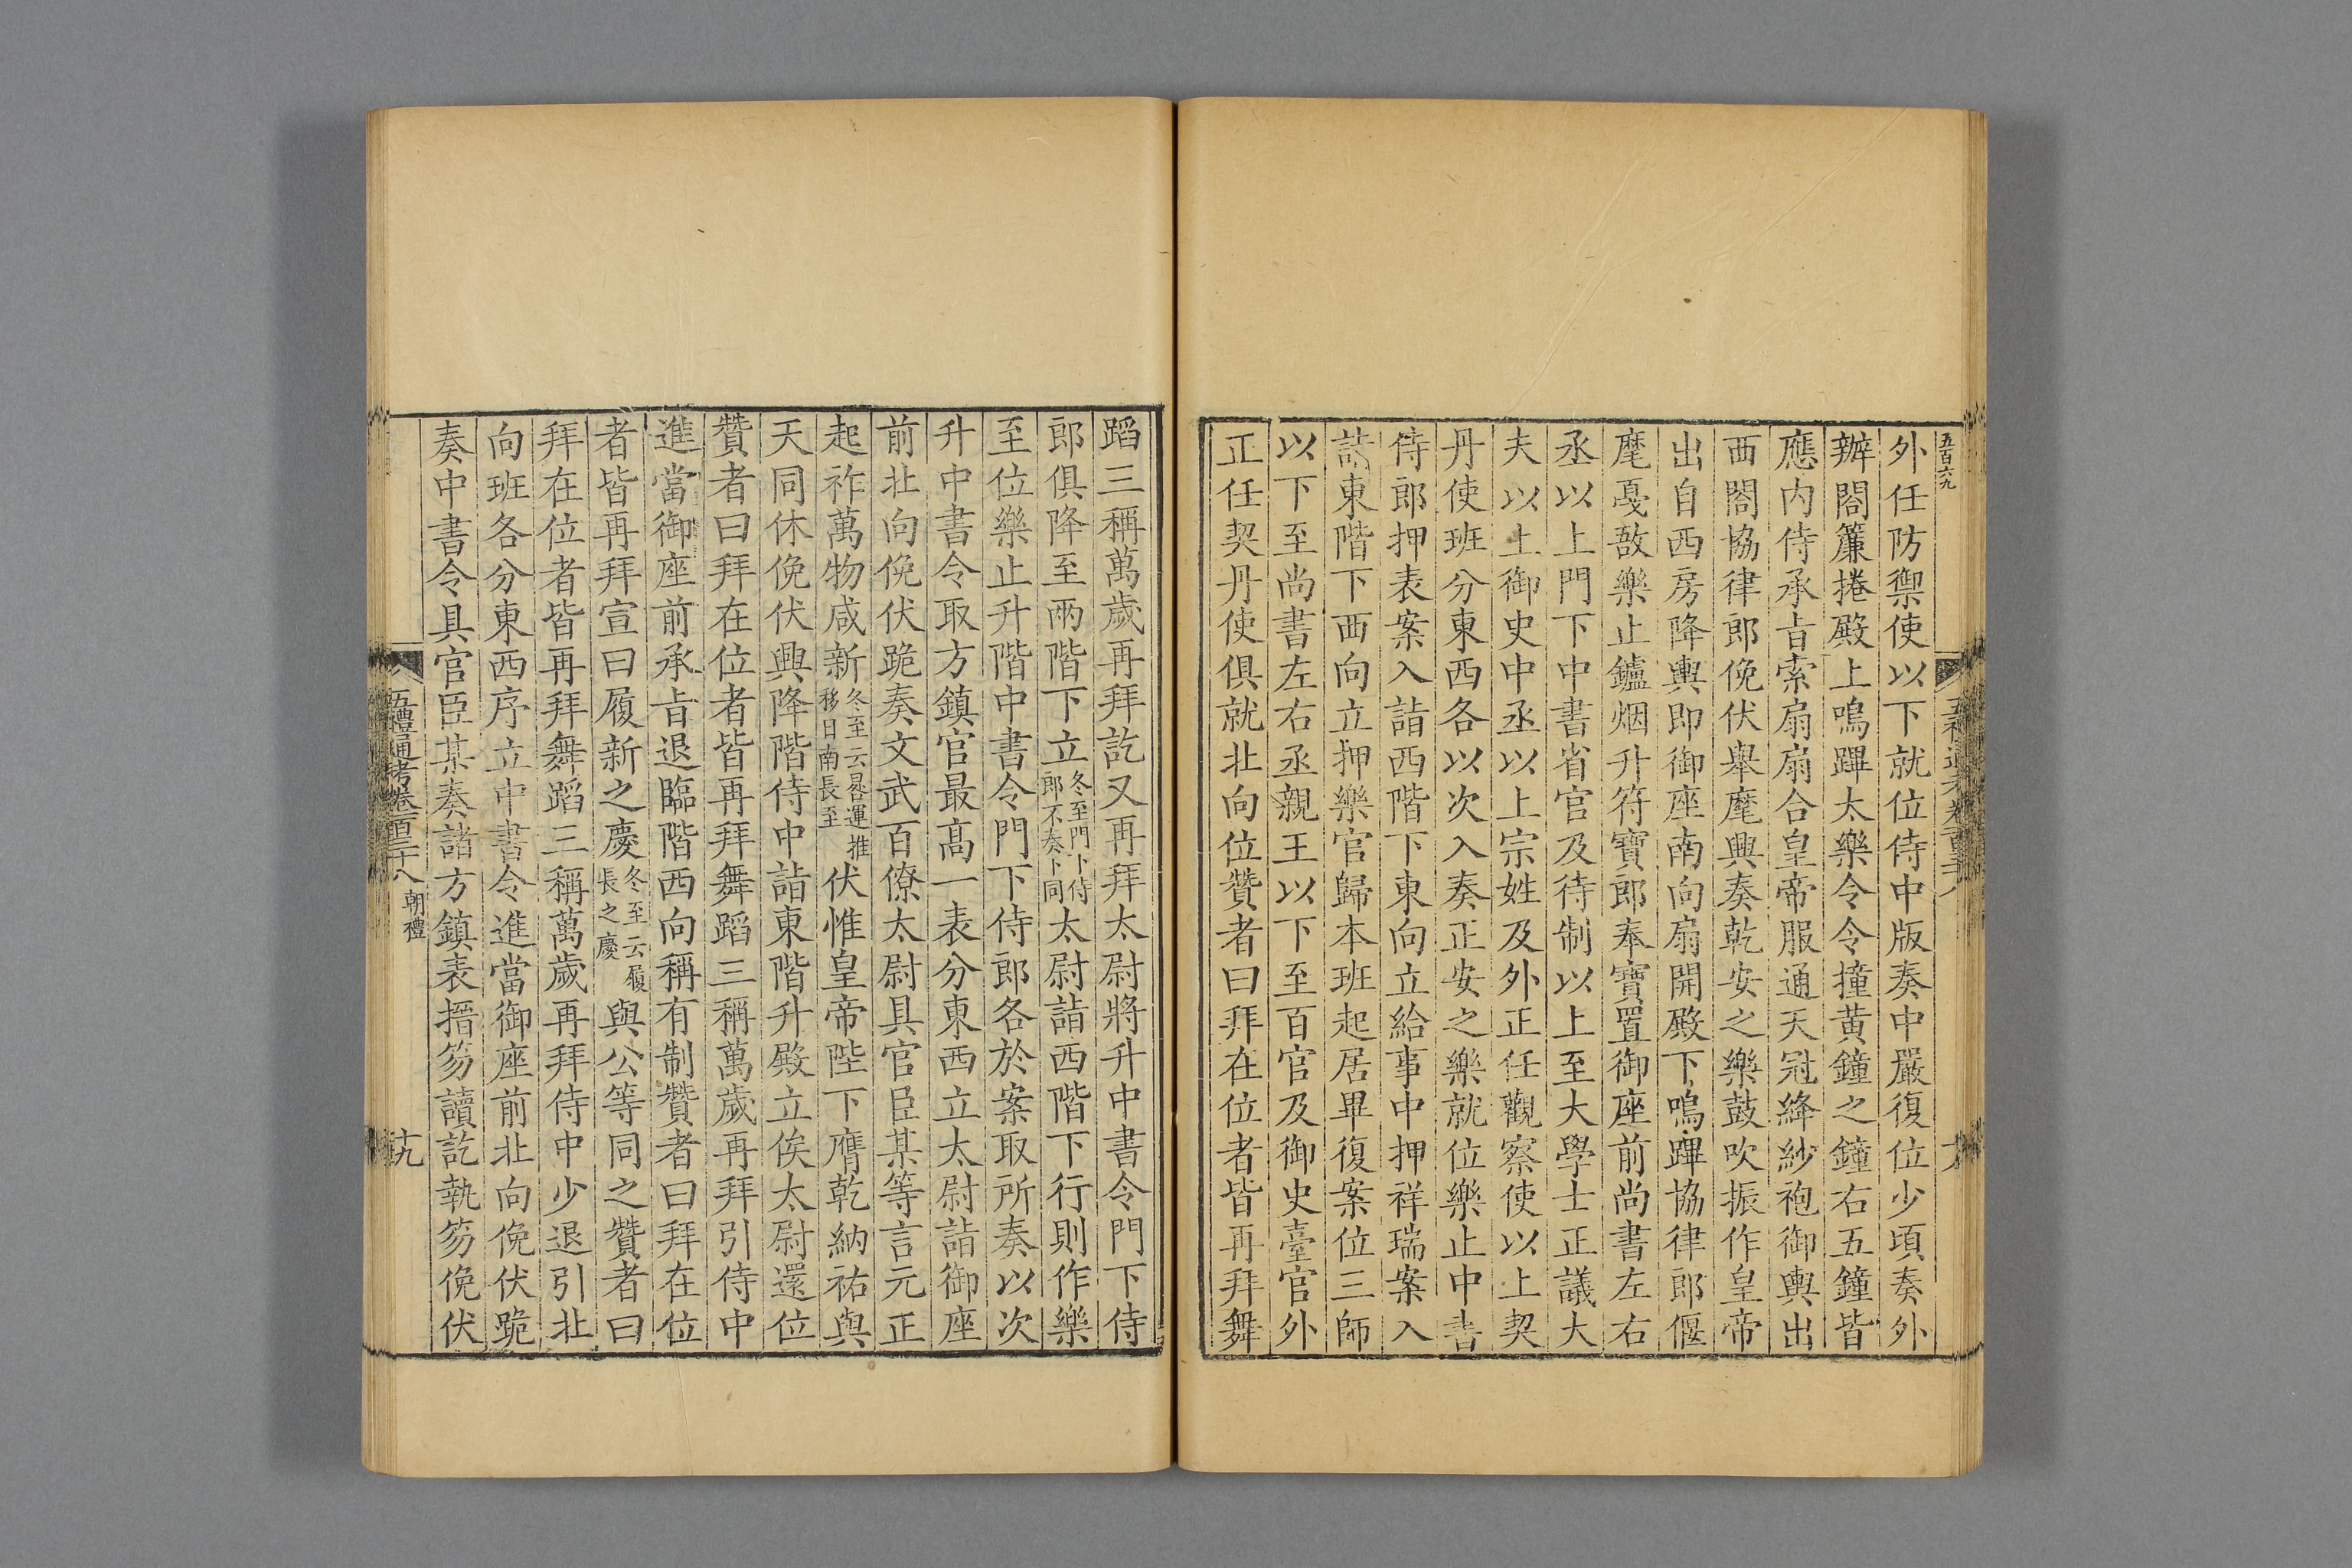 五百六九
外任防禦使以下就位侍中版奏中嚴復位少頃奏外
辦閤簾捲殿上鳴蹕太樂令令撞黄鐘之鐘右五鐘皆
應内侍承㫖索扇扇合皇帝服通天冠絳紗袍御輿出
西閤協律郎俛伏舉麾興奏乾安之樂鼓吹振作皇帝
出自西房降輿即御座南向扇開殿下鳴蹕協律郎偃
麾戞敔樂止鑪烟升符寶郎奉寶置御座前尚書左右
丞以上門下中書省官及待制以上至大學士正議大
夫以上御史中丞以上宗姓及外正任觀察使以上契
丹使班分東西各以次入奏正安之樂就位樂止中書
侍郎押表案入詣西階下東向立給事中押祥瑞案入
詣東階下西向立押樂官歸本班起居畢復案位三師
以下至尚書左右丞親王以下至百官及御史臺官外
正任契丹使俱就北向位贊者曰拜在位者皆再拜舞
蹈三稱萬歲再拜訖又再拜太尉將升中書令門下侍
郎俱降至兩階下立冬至門下侍郎不奏下同太尉詣西階下行則作樂
至位樂止升階中書令門下侍郎各於案取所奏以次
升中書令取方鎮官最高一表分東西立太尉詣御座
前北向俛伏跪奏文武百僚太尉具官臣某等言元正
起祚萬物咸新冬至云晷運推移日南長至伏惟皇帝陛下膺乾納祐與
天同休俛伏興降階侍中詣東階升殿立俟太尉還位
贊者曰拜在位者皆再拜舞蹈三稱萬歲再拜引侍中
進當御座前承㫖退臨階西向稱有制贊者曰拜在位
者皆再拜宣曰履新之慶冬至云履長之慶與公等同之贊者曰
拜在位者皆再拜舞蹈三稱萬歲再拜侍中少退引北
向班各分東西序立中書令進當御座前北向俛伏跪
奏中書令具官臣某奏諸方鎮表搢笏讀訖執笏俛伏
五禮通考卷一百三十八 朝禮
十九